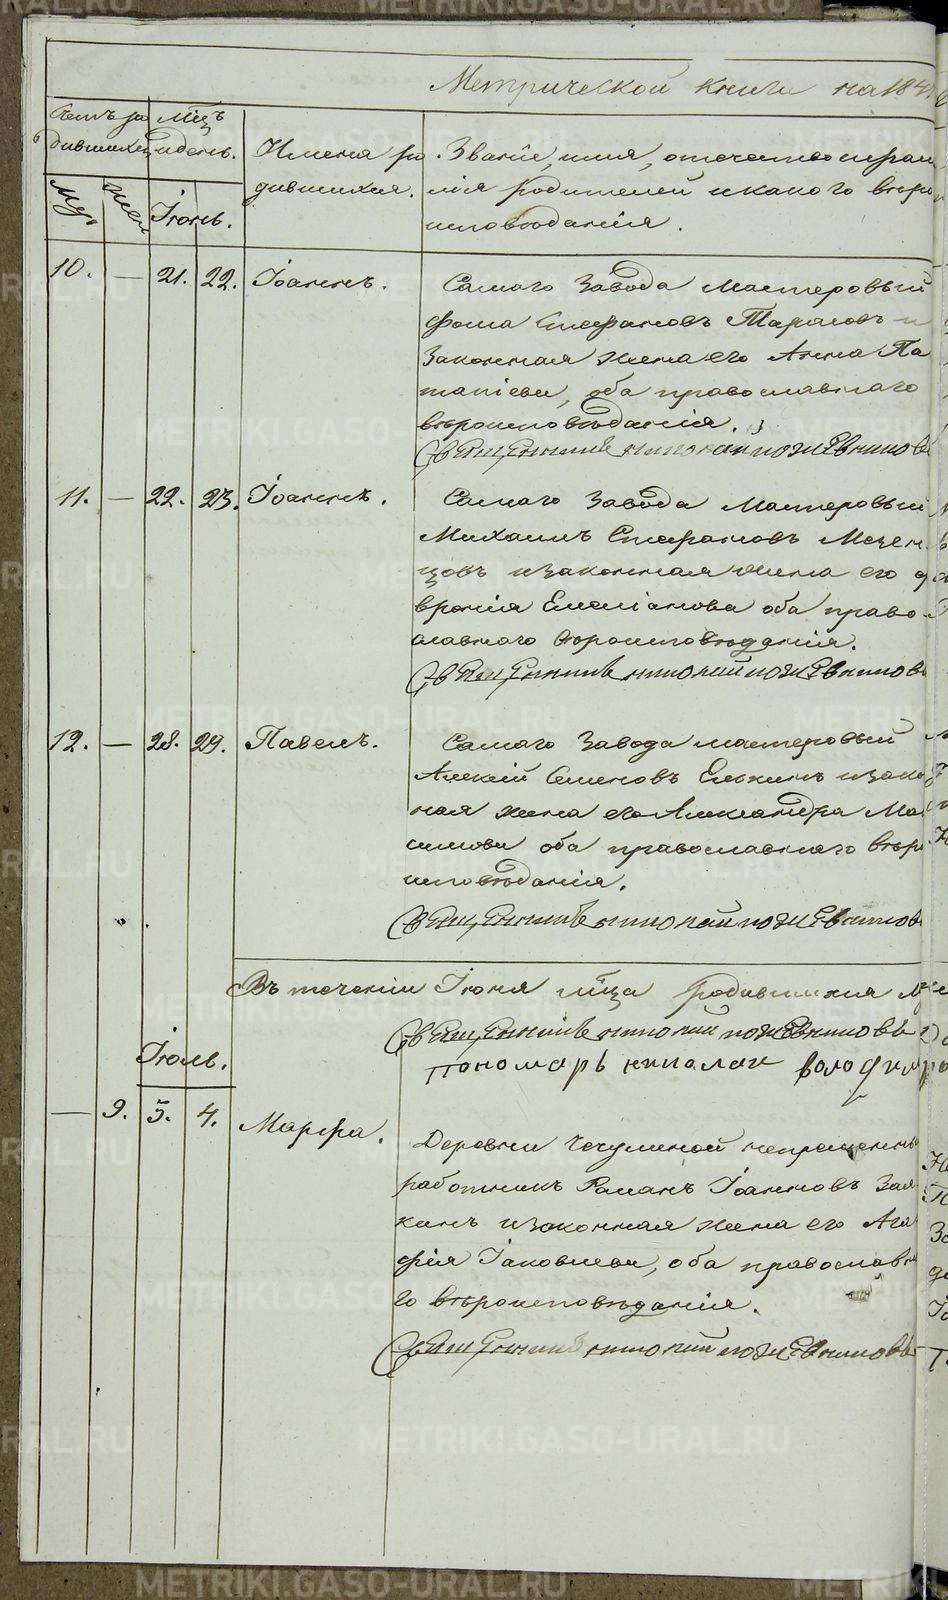 Метрической книги на 184
Счетъ ро
дившихся
мѣцъ
и день.
Имена ро
дившихся.
Званіе, имя, отечество и фами
лія родителей и какого вѣро
исповѣданія.
Муж
жен
Іюнь.
10. — 21. 22. Іоаннъ. Самаго Завода Мастеровый
Фома Стефановъ Тарасовъ и
Законная жена его Анна Па
тапіева, оба православнаго
вѣроисповѣданія.
Священникъ николай
11. — 22. 23. Іоаннъ. Самаго Завода Мастеровый
Михаилъ Стефановъ Мезен
цовъ и законная жена его
вронія Емеліанова оба право
славнаго вѣроисповѣданія.
Священникъ николай
12. — 28. 29. Павелъ. Самаго Завода мастеровый
Алексій Семеновъ Елькинъ и зако
ная жена его Александра Ма
симова оба православнаго вѣро
исповѣданія.
Священникъ николай
Въ теченіи Іюня мѣца родившихся
Священникъ николай
пономарь николай
Іюль.
— 9. 3. 4. Марфа. Деревни Чечулиной непремѣнный
работникъ Романъ Іоанновъ Заи
кинъ и законная жена его Ага
фія Іаковлева, оба православна
го вѣроисповѣданія.
Священникъ николай
METRIKI.GASO-URAL.RU